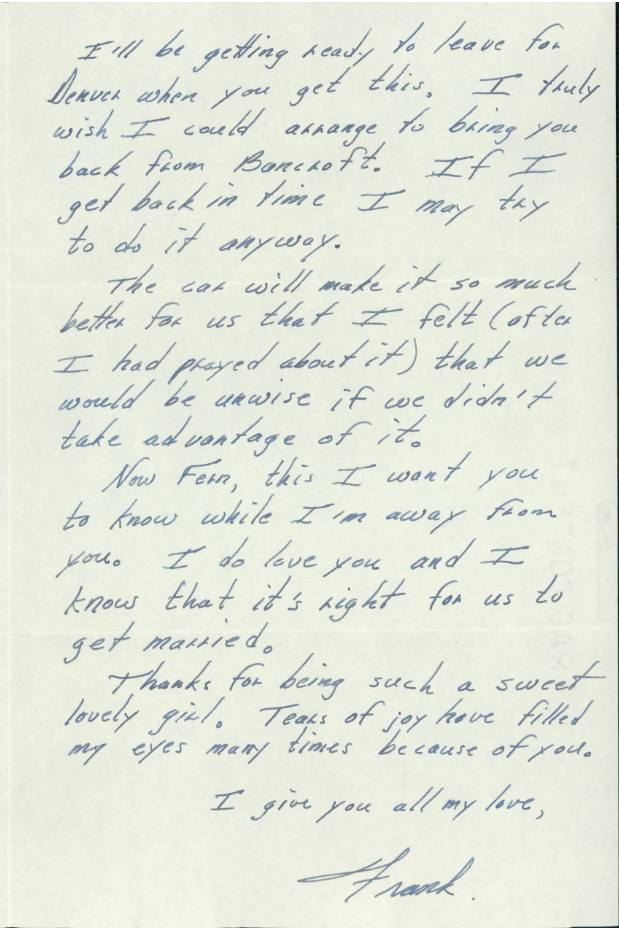 I'll be getting ready to leave for
Denver when you get this. I truly
wish I could arrange to bring you
back from Bancroft. If I
get back in time I may try
to do it anyway.
The car will make it so much
better for us that I felt (after
I had prayed about it) that we
would be unwise if we didn't
take advantage of it.
Now Fern, this I want you
to know while I'm away from
you. I do love you and I
know that it's right for us to
get married.
Thanks for being such a sweet
lovely girl. Tears of joy have filled
my eyes many times because of you.
I give you all my love,
Frank.